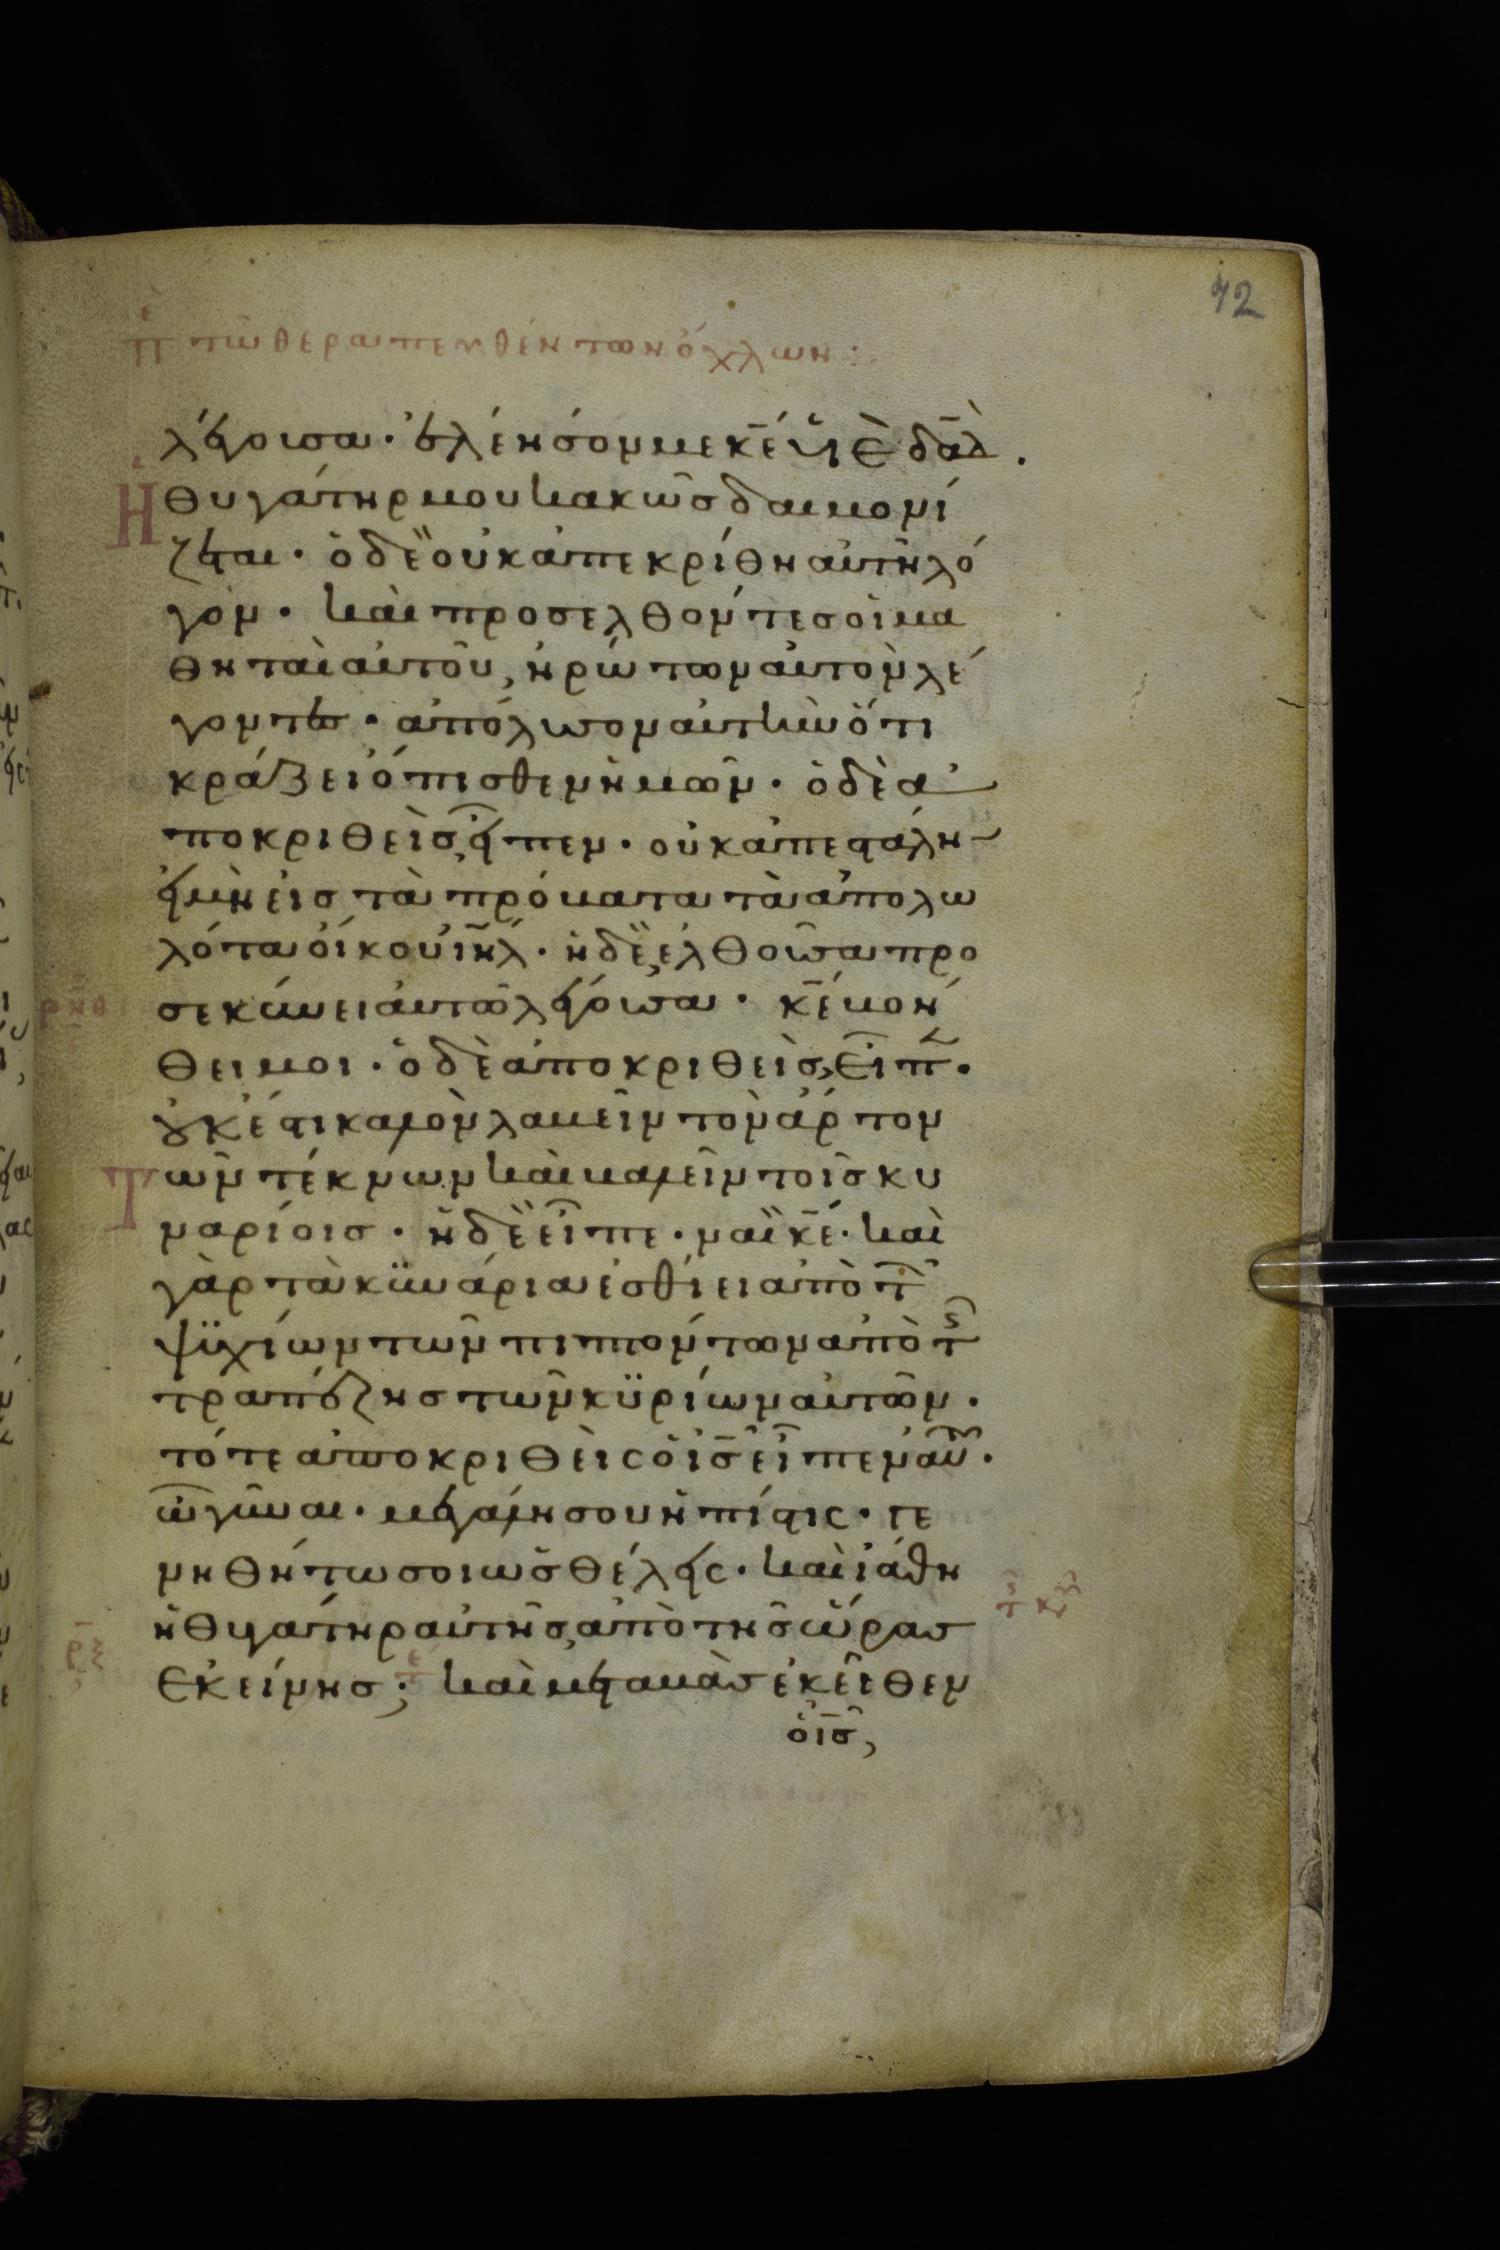 42
π̅ τῶ θεραπευθέντων ὄχλων :
λέγουσα · ἐλέησόν με κ̅έ υἱὲ δα̅δ̀ .
Ἡ θυγάτηρ μου κακῶς δαιμονί
ζεται · ὁ δὲ οὐκ ἀπεκρίθη αὐτῆ λό
γον · καὶ προσελθόντες οἱ μα
θηταὶ αὐτοῦ, ἠρώτων αὐτὸν λέ
γοντες · ἀπόλυσον αὐτὴν ὅτι
κράζει ὄπισθεν ἡμῶν · ὁ δὲ ἀ
ποκριθεὶς, εἶπεν · οὐκ ἀπεστάλη
εἰ μὴ εἰς τὰ πρόβατα τὰ ἀπολω
λότα οἴκου ἰ̅η̅λ̅ · ἡ δὲ, ἐλθοῦσα προ
ρ̅ν̅θ̅ σεκύνει αὐτῶ λέγουσα · κ̅έ βοή
θει μοι · ὁ δὲ ἀποκριθεὶς, εἶπ̅ ·
οὐκ ἔστι καλὸν λαβεῖν τὸν ἄρτον
Τῶν τέκνων καὶ βαλεῖν τοῖς κυ
ναρίοις · ἡ δὲ εἶπε · ναὶ κ̅έ · καὶ
γὰρ τὰ κϋνάρια ἐσθίει ἀπὸ τ̅
ψϋχίων τῶν πιπτόντων ἀπὸ τ̅
τραπέζης τῶν κϋρίων αὐτῶν ·
τότε ἀποκριθεὶς ὁ ἰ̅ς̅ εἶπεν αὐ̅ ·
ὦ γύναι · μεγάλη σου ἡ πίστις · γε
νηθήτω σοι ὡς θέλεις · καὶ ἰάθη
ἡ θυγάτηρ αὐτῆς, ἀπὸ τῆς ὥρας
ρ̅ξ̅ Ἐκείνης ; καὶ μεταβὰς ἐκεῖθεν
ὁ ἰ̅ς̅,